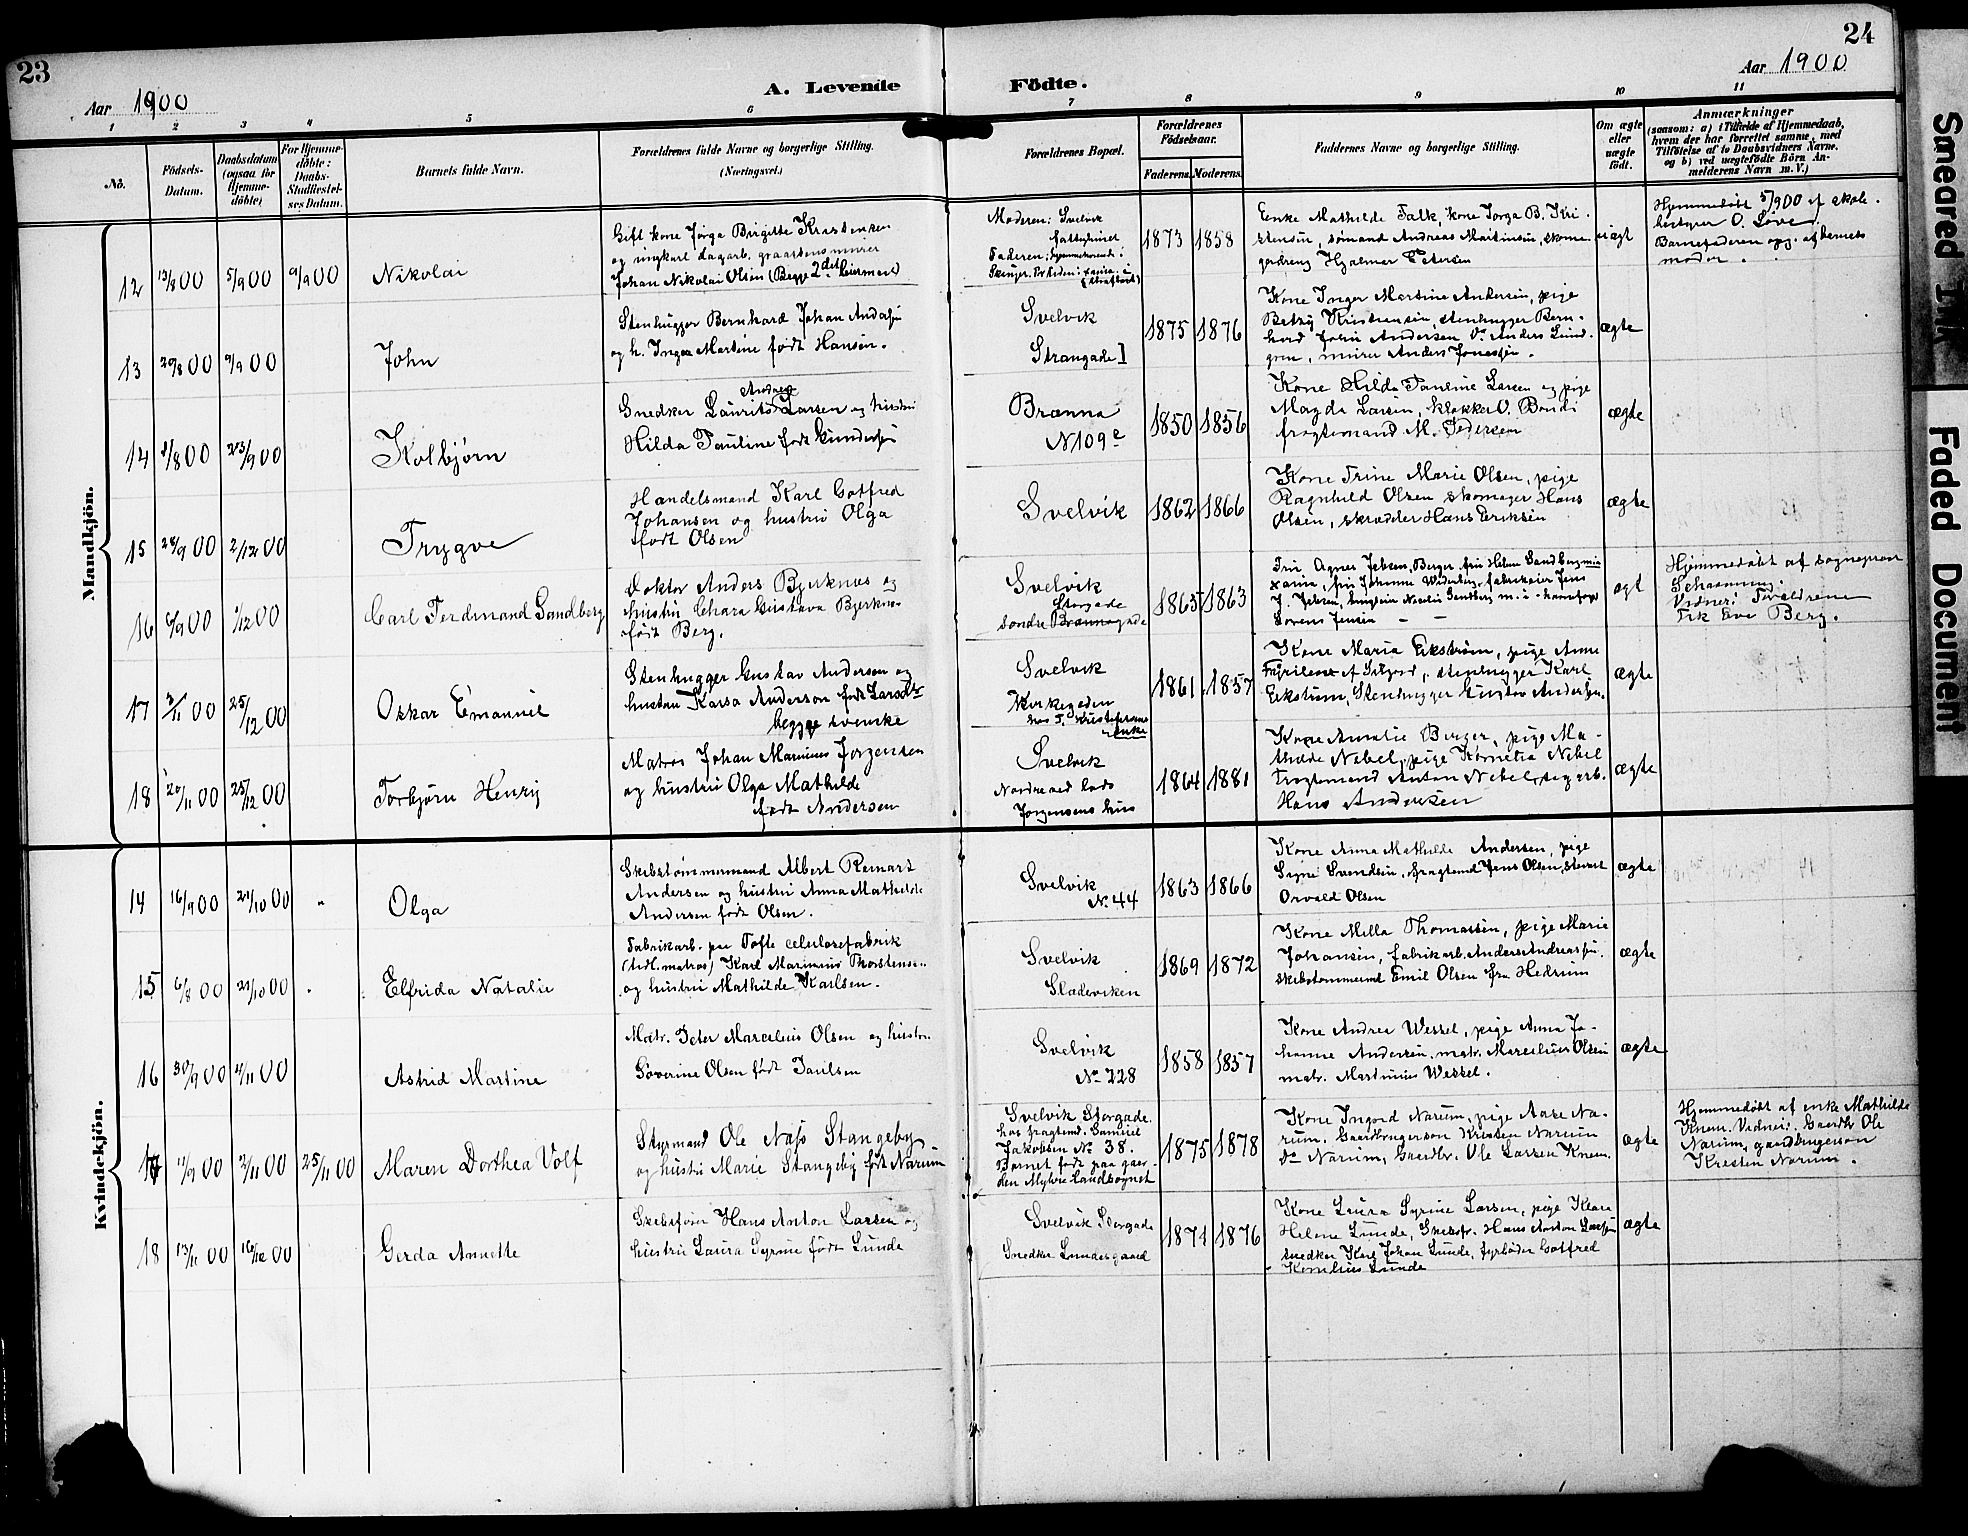 23
24
Aar 1900
A. Levende
Födte.
Aar 1900
1 2 3 4 5 6 7 8 9 10 11
No.
Födsels-
Datum.
Daabsdatum
(ogsaa for
Hjemme-
döbte)
For Hjemme-
döbte:
Daabs-
Stadfæstel-
ses Datum.
Barnets fulde Navn.
Forældrenes fulde Navne og borgerlige Stilling.
(Næringsvei.)
Forældrenes Bopæl.
Forældrenes
Födselsaar.
Faderens. Moderens.
Faddernes Navne og borgerlige Stilling.
Om ægte
eller
uægte
födt.
Anmærkninger
(saasom: a) i Tilfælde af Hjemmedaab,
hvem der har forrettet samme, med
Tilföielse af to Daabsvidners Navne,
og b) ved uægtefödte Börn An-
melderens Navn m. V.)
Mandkjön.
12 13/8 00 5/9 00 9/9 00
Nikolai
Gift kone Jørga Birgitte Kristensen
og ungkarl dagarb. graastensmurer
Johan Nikolai Olsen (Begge 2det leiermaal)
Moderen: Svelvik
fattighuset
Faderen: hjemmehørende i
1873 1858
Enke Mathilde Falk, kone Jørga B. Kri-
stensen, sømand Andreas Martinsen, skoma-
gerdreng Hjalmar Petersen
uægt
Hjemmedøbt 5/9 00 af skole-
bestyrer O. Løve.
Barnefaderen opg. af barnets
moder.
13 20/8 00 9/9 00
John
Stenhugger Bernhard Johan Andersen
og h. Inga Martine født Hansen.
Svelvik
Strangade I
1875 1876
Kone Inger Martine Andersen, pige
Betzy Kristensen, stenhugger Bern-
hard John Andersen, Do Anders Lund-
gren, murer Anders Jonassen.
ægte
14 8/8 00 23/9 00
Kolbjørn
Andreas
Snedker Laurits Larsen og hustru
Hilda Pauline født Gundersen
Brænna
N 109 c
1850 1856
Kone Hilda Pauline Larsen og pige
Magda Larsen, klokker O. Bondi
fragtemand M. Pedersen
ægte
15 28/9 00 2/12 00
Trygve
Handelsmand Karl Gotfred
Johansen og hustru Olga
født Olsen
Svelvik
1862 1866
Kone Trine Marie Olsen, pige
Ragnhild Olsen skomager Hans
Olsen, skrædder Hans Eriksen
ægte
16 6/9 00 1/12 00
Carl Ferdinand Sandberg
Doktor Anders Bjerknes og
hustru Chara Gustava Bjerknes
født Berg.
Svelvik
Storgade
søndre Brænnagade
1865 1863
Fru Agnes Jebsen, Berger, fru Helene Sandberg
fru Johanne Wedeberg, fabrikeier Jens
J. Jebsen,
Sørens Jensen
ægt
Hjemmedøbt af sogneprest
Schanning.
Vidner: Forældrene
Frk Eva Berg.
17 3/11 00 25/12 00
Oskar Emanuel
Stenhugger Gustav Anderson og
hustru Karsa Anderson født Larsdtr
begge svenske
Svelvik
Kirkegaden
hos T. Kristofersens
enke
1861 1857
Kone Maria Ekstrøm, pige Anna
stenhugger Karl
Ekstrøm, Stenhugger Gustav Andersen.
ægte
18 20/11 00 25/12 00
Torbjørn Henry
Matros Johan Marinius Jørgensen
og hustru Olga Mathilde
født Andersen
Svelvik
Nordre ved lods
Jørgensens hus
1864 1881
Kone Amalie Berger, pige Ma-
thilde Nebel, pige Kornelia Nebel
fragtemand Anton Nebel, dagarb.
Hans Andersen
ægte
Kvindekjön.
14 16/9 00 21/10 00 "
Olga
Skibstømmermand Albert Remart
Andersen og hustru Anna Mathilde
Andersen født Olsen.
Svelvik
No. 44
1863 1866
Kone Anna Mathilde Andersen, pige
Signe Svendsen, fragtemd Jens Olsen, stuert
Osvald Olsen
ægte
15 6/8 00 21/10 00 "
Elfrida Natalie
Fabrikarb. paa Tofte cellulosefabrik
(tidl. matros) Karl Marinius Thorstensen
og hustru Mathilde Karlsen.
Svelvik
Sladeviken
1869 1872
Kone Milla Thomassen, pige Marie
Johansen, fabrikarb. Anders Andreassen,
skibstømmermd Emil Olsen fra Hedrum
ægte
16 30/9 00 4/11 00
Astrid Martine
Matr. Peter Marcelius Olsen og hustru
Søverine Olsen født Paulsen
Svelvik
No 228
1858 1857
Kone Andrea Wessel, pige Anna Jo-
hanne Andersen, matr. Marcelius Olsen
matr. Martinius Wessel.
ægte
17 11/9 00 2/11 00 25/11 00
Maren Dorthea Volf
Styrmand Ole Næss Stangeby
og hustru Marie Stangeby født Narum
Svelvik Storgade.
hos fragtemd. Samuel
Jakobsen No 38.
Barnet født paa gaar-
den Myhre landsognet
1875 1878
Kone Ingard Narum, pige Aase Na-
rum, Gaardbrugersøn Kristen Narum
Do Narum, Gaardbr. Ole Larsen Knem.
ægte
Hjemmedøbt af enke Mathilde
Knem. Vidner: Gaardbr Ole
Narum, gaardbrugersøn
Kristen Narum.
18 13/11 00 16/12 00
Gerda Annette
Skibsfører Hans Anton Larsen og
hustru Laura Syrine født Lunde
Svelvik Storgade
Snedker Lundes gaard
1874 1876
Kone Laura Syrine Larsen, pige Klara
Helene Lunde, Skibsfr. Hans Anton Larsen
snedker Karl Johan Lunde, fyrbøder Gotfred
Kornelius Lunde
ægte
Smeared Ink
Faded Document